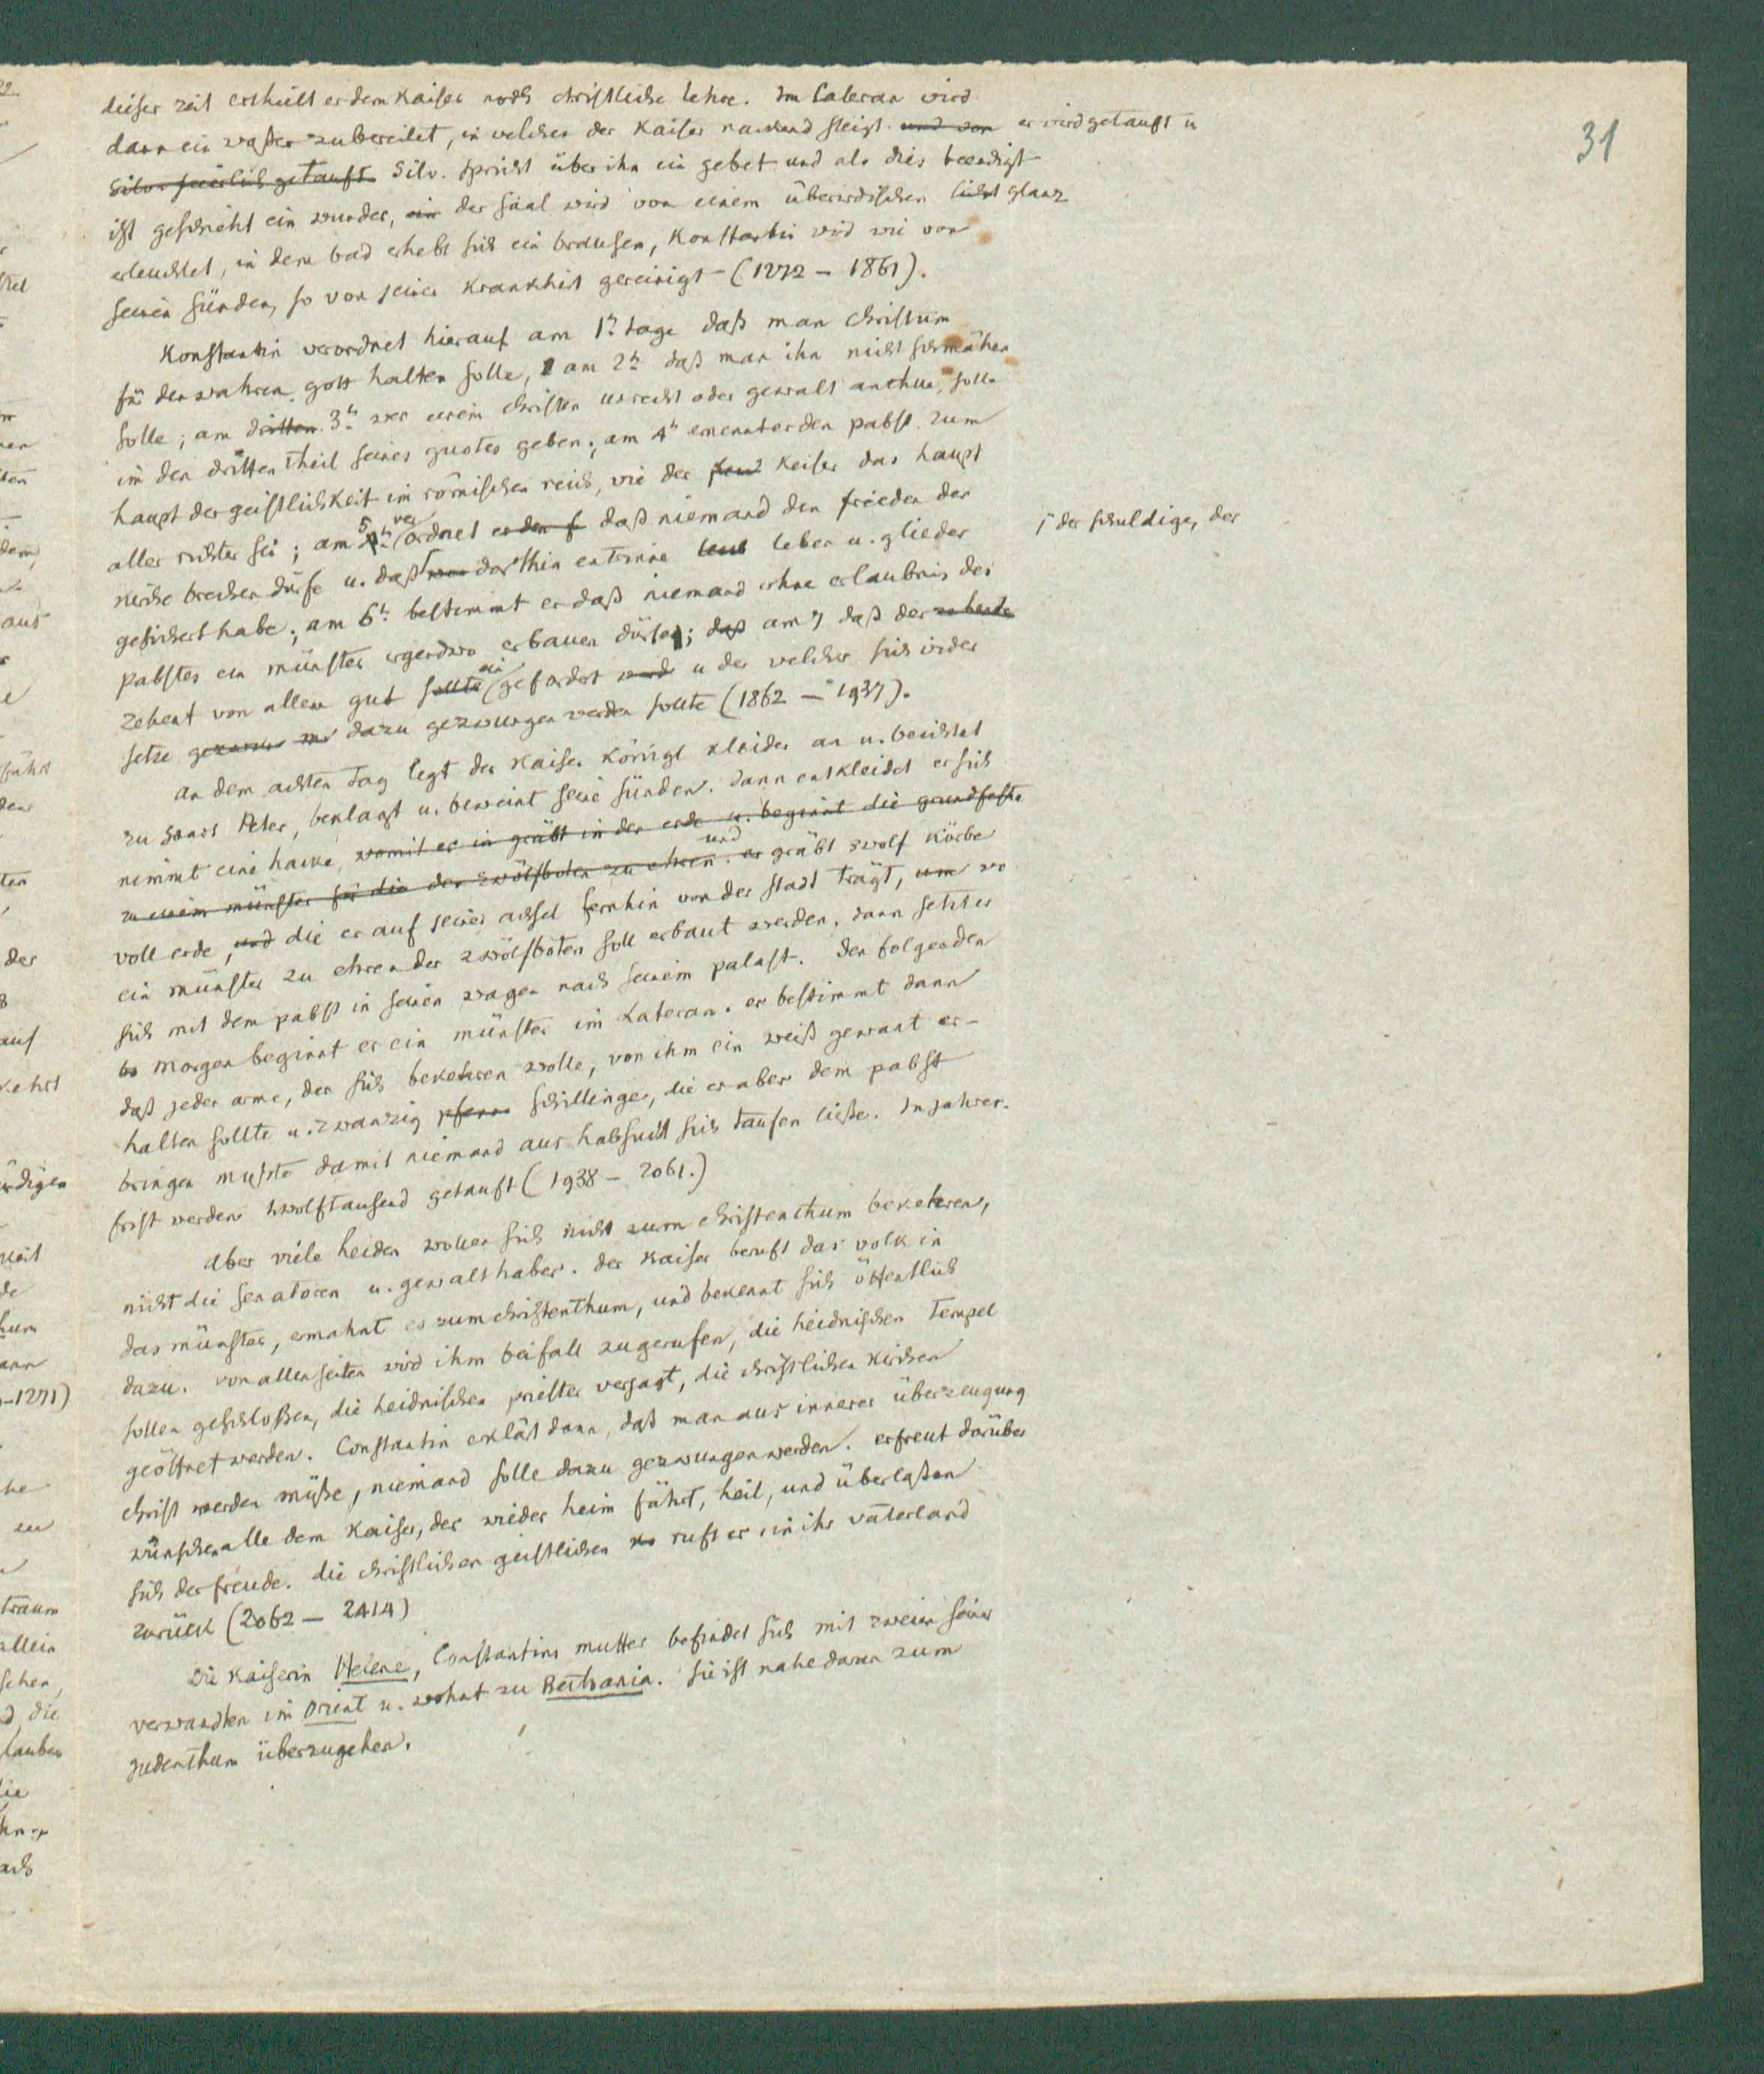 31
dieser zeit ertheilt er dem Kaiser noch christliche lehre. Im Lateran wird
dann ein waßer zubereitet, in welches der Kaiser nackend steigt. und von er wird getauft u
Silv. feierlich getauft. Silv. spricht über ihn ein gebet und als dies beendigt
ist geschieht ein wunder, ein der saal wird von einem überirdischen licht glanz
erleuchtet, in dem bad erhebt sich ein brausen, Konstantin wird wie von
seinen sünden, so von seiner Krankheit gereinigt (1272 – 1861).
Konstantin verordnet hierauf am 1n tage daß man Christum
für den wahren gott halten solle, am 2n daß man ihn nicht schmähen
solle; am dritten 3n wer einem christen unrecht oder gewalt anthue, solle
im den dritten theil seines guotes geben; am 4n ernennt er den pabst zum
haupt der geistlichkeit im römischen reich, wie der Keiser das haupt
aller richter sei; am 5n verordnet er den f daß niemand den frieden der
kirche brechen dürfe u. daß wer der schuldige, der dorthin entrinne leben u. glieder
gesichert habe; am 6n bestimmt er daß niemand ohne erlaubnis des
pabstes ein münster irgendwo erbauen dürfe; daß am 7 daß der zehende
zehent von allem gut sollte eingefordert werde u der welcher sich wider
setze gezwungen dazu gezwungen werden sollte (1862 – 1937).
an dem achten tag legt der Kaiser königl kleider an u. beichtet
zu Sanct Peter, beklagt u. beweint seine sünden. dann entkleidet er sich
nimmt eine hacke, womit er in gräbt in der erde u. beginnt die grundfeste
zu einem münster für die der zwölfboten zu ehren. er und gräbt zwolf körbe
voll erde, und die er auf seiner achsel fernhin von der stadt trägt, um wo
ein münster zu ehren der zwölfboten soll erbaut werden. dann setzt er
sich mit dem pabst in seinen wagen nach seinem palast. Den folgenden
morgen beginnt er ein münster im Lateran. er bestimmt dann
daß jeder arme, der sich bekehren wolle, von ihm ein weiß gewant er-
halten sollte u. zwanzig pfenn schillinge, die er aber dem pabst
bringen mußte damit niemand aus habsucht sich taufen ließe. In jahres-
frist werden zwolftausend getauft (1938 – 2061.)
Aber viele heiden wollen sich nicht zum christenthum bekehren,
nicht die senatoren u. gewalthaber. der Kaiser beruft das volk in
das münster, ermahnt es zum christenthum, und bekennt sich öffentlich
dazu. von allen seiten wird ihm beifall zugerufen, die heidnischen tempel
sollen geschloßen, die heidnischen priester verjagt, die christlichen kirchen
geöffnet werden. Constantin erklärt dann, daß man aus innerer überzeugung
christ werden müße, niemand solle dazu gezwungen werden. erfreut darüber
wünschen alle dem Kaiser, der wieder heim fährt, heil, und überlaßen
sich der freude. die christlichen geistlichen ruft er in ihr vaterland
zurück (2062 – 2414)
Die Kaiserin Helene, Constantins mutter befindet sich mit zweien seiner
verwandten im Orient u. wohnt zu Bethania. sie ist nahe daran zum
Judenthum überzugehen.